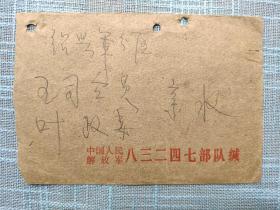 绍兴军分区
王司令员 亲收
叶政委
中国人民
解放军 八三二四七部队缄